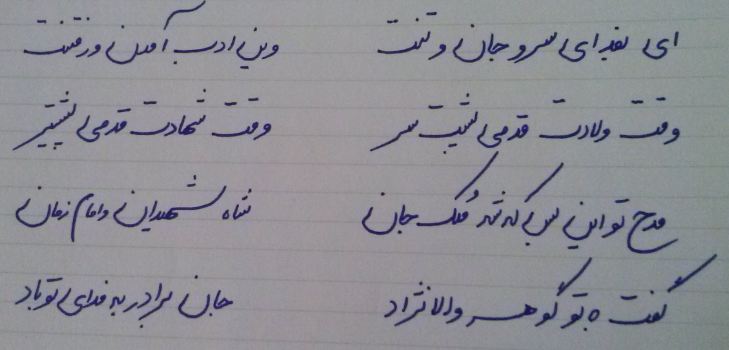 ای بفدای سر و جان و تنت وین ادب آمدن و رفتنت
وقت ولادت قدمی پشت سر وقت شهادت قدمی پیشتر
مدح تو این بس که شه مُلک جان شاه شهیدان و امام زمان
گفت به تو گوهر والانژاد جان برادر به فدای تو باد